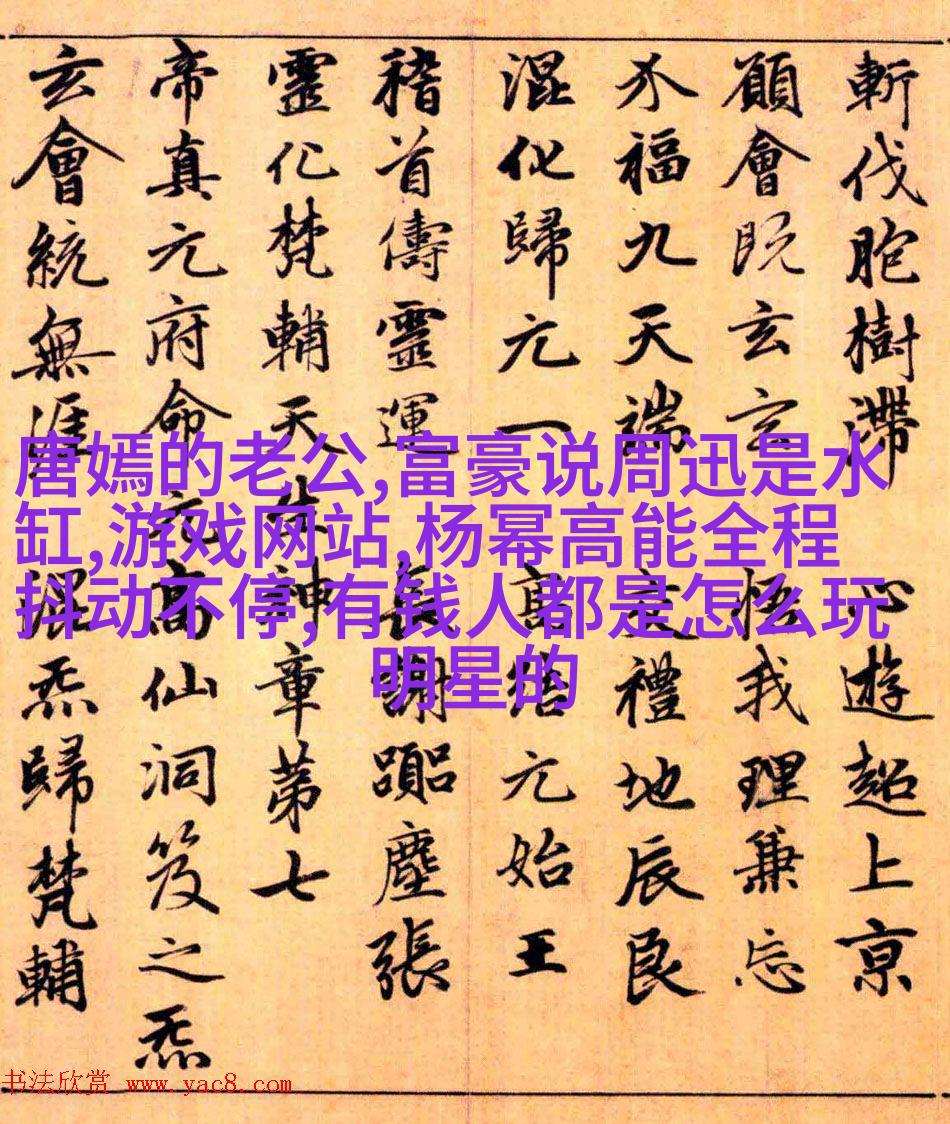 斬伐胞樹滯 心遊超上亰
願會既玄玄 悟我理兼忘
介福九天端 交禮地辰良
混化歸元一 高結元始王
稽首儔靈運 長謝塵張
靈化梵輔天 朱神章第七
帝真元府命元高仙洞笈之炁
玄會統無涯 混炁歸梵輔
唐嫣的老公,富豪说周迅是水
缸,游戏网站,杨幂高能全程
抖动不停,有钱人都是怎么玩
明星的
书法欣赏 www.yac8.com